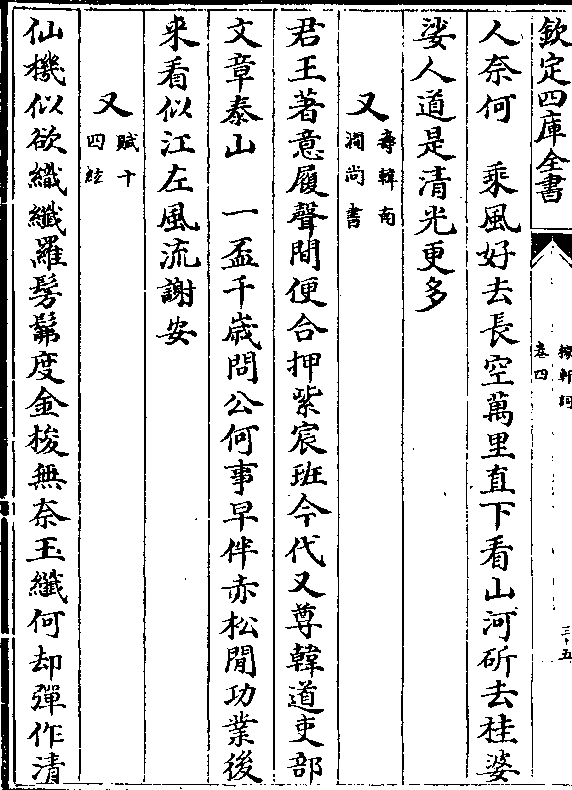 欽定四庫全書
稼軒詞
卷四
三五
人奈何　乘風好去長空萬里直下看山河斫去桂婆
娑人道是清光更多
又壽韓南
澗尚書
君王著意履聲間便合押紫宸班今代又尊韓道吏部
文章泰山　一盃千歳問公何事早伴赤松閒功業後
来看似江左風流謝安
又賦十
四絃
仙機似欲織纎羅髣髴度金梭無奈玉纎何却彈作清